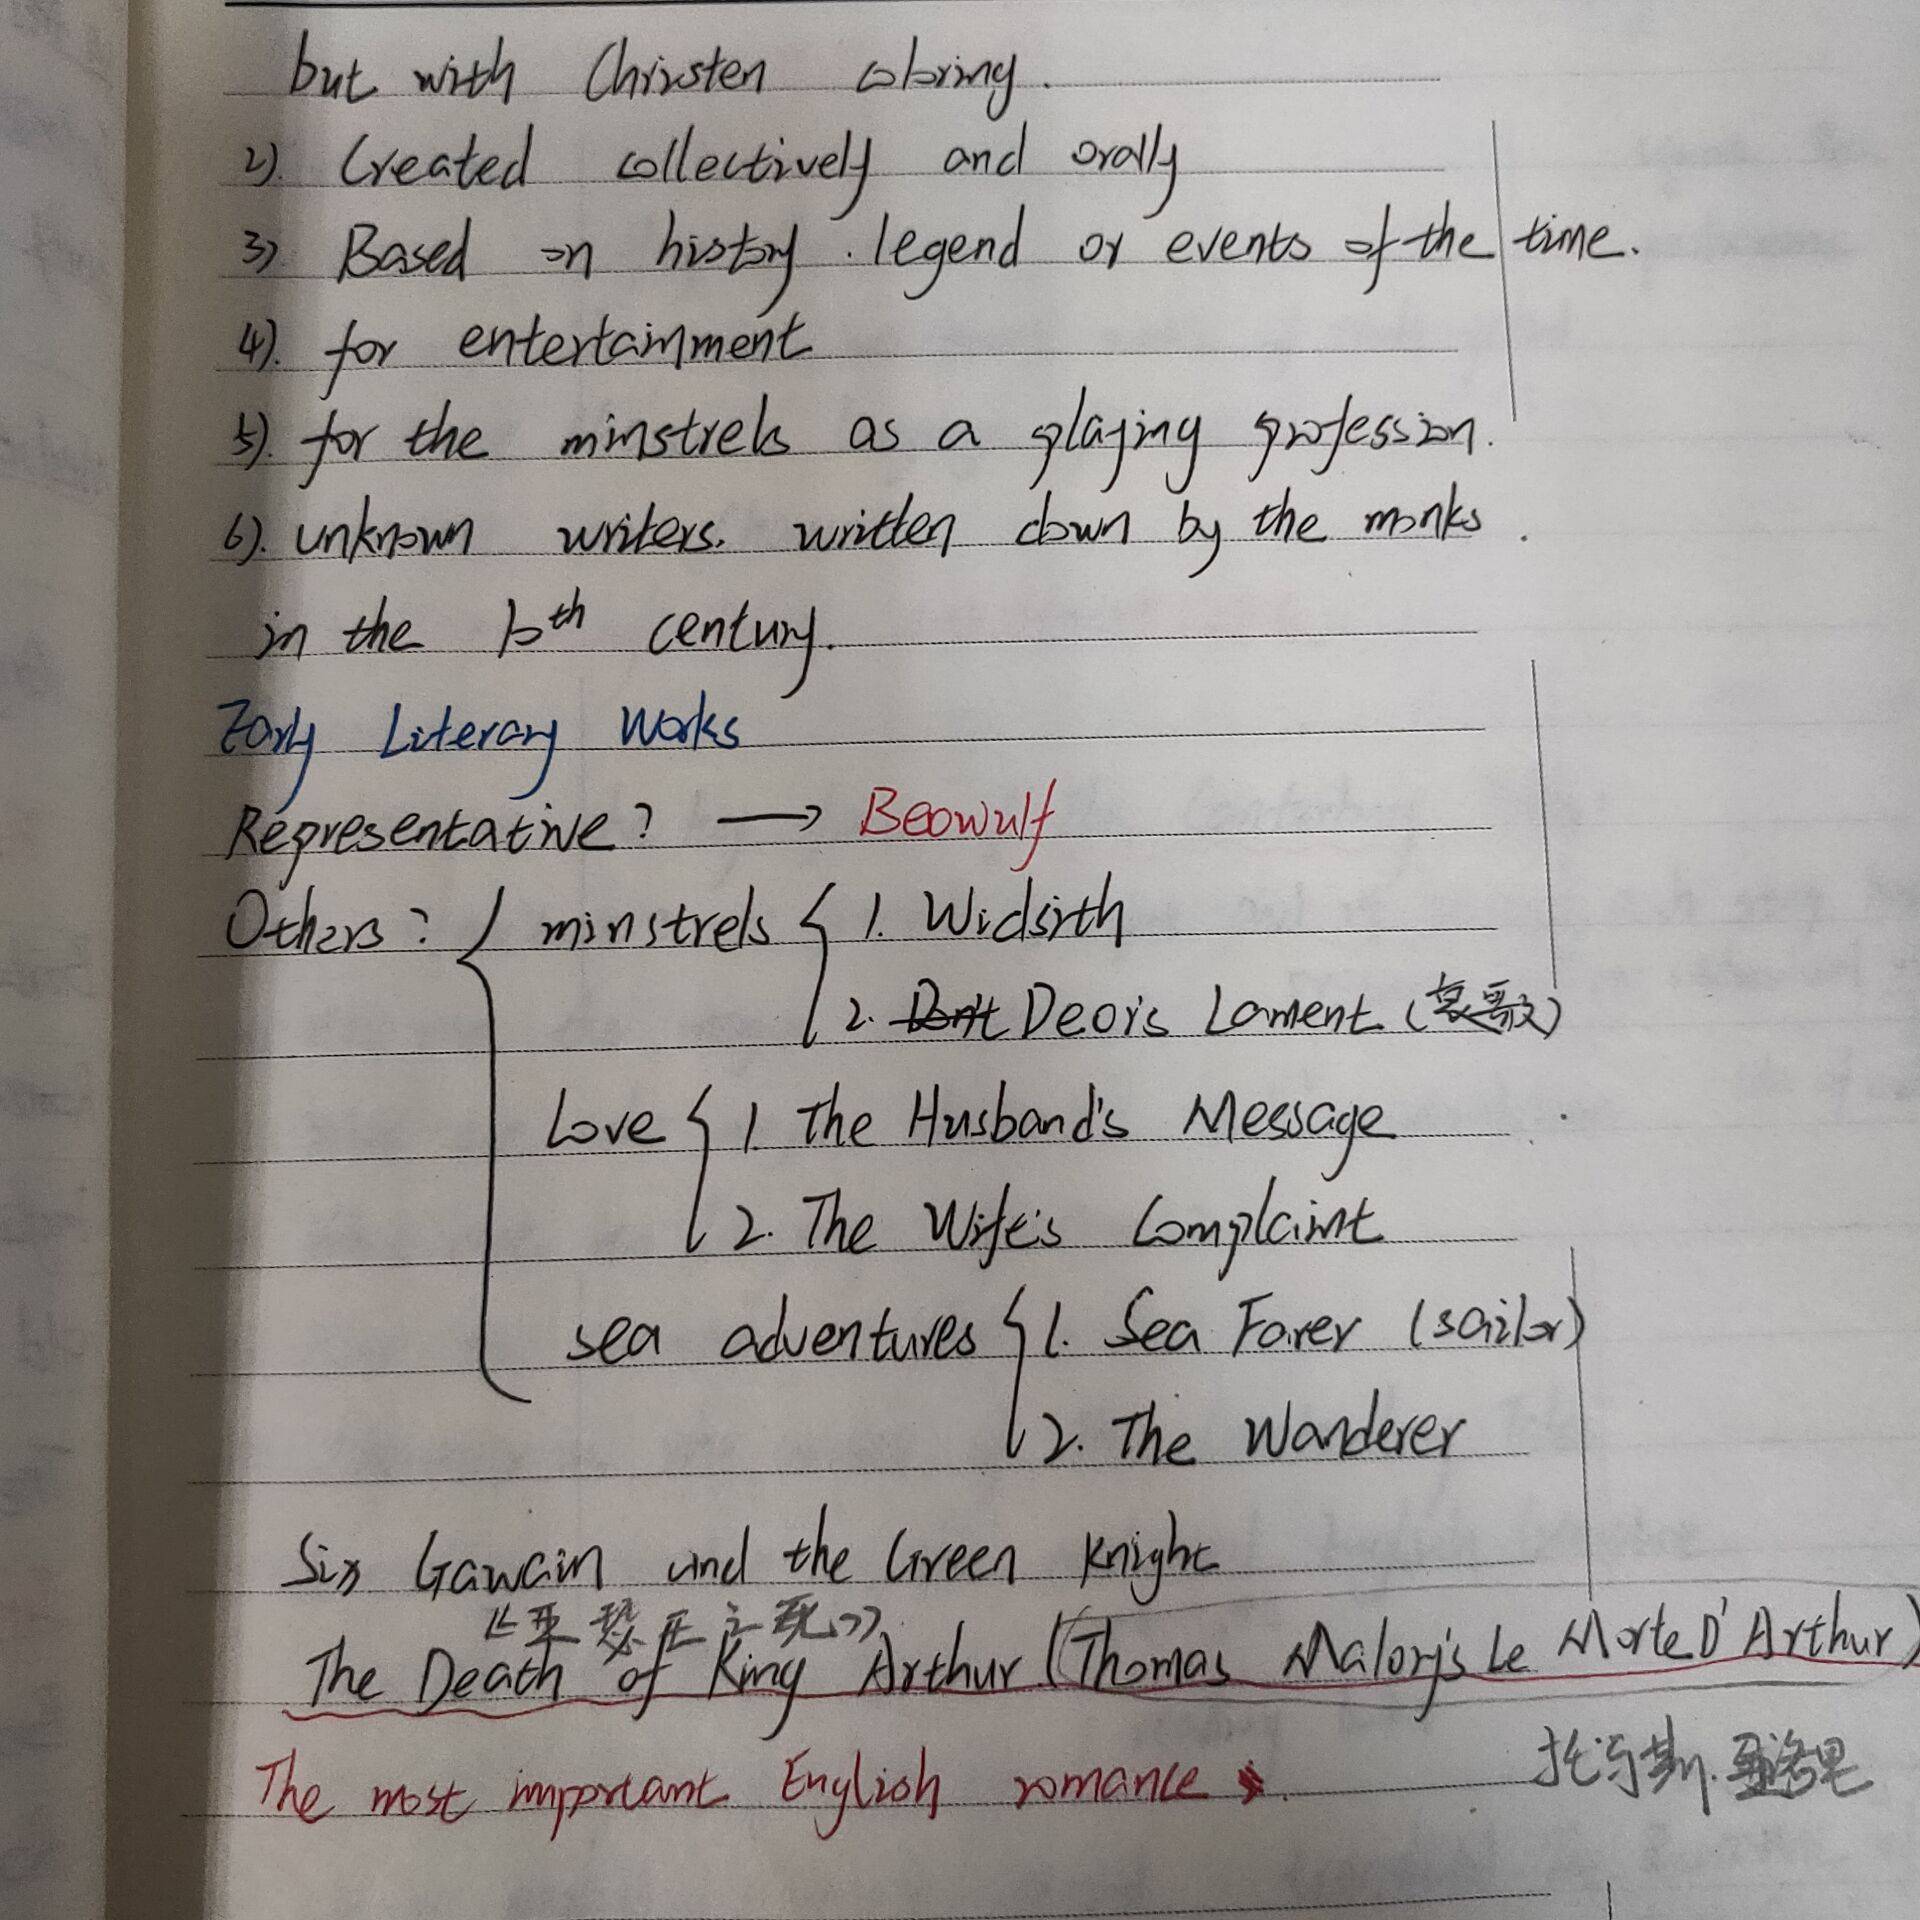 but with Chirsten coloring.
2). Created collectively and orally
3) Based on history. legend or events of the time.
4). for entertainment
5). for the minstrels as a playing profession.
6). unknown writers. written down by the monks.
in the 10th century.
Early Literary Works
Representative? → Beowulf
Others? minstrels 1. Widsirth
2. Deor's Lament (哀歌)
Love 1. The Husband's Message
2. The Wife's Complaint
sea adventures 1. Sea Farer (sailor)
2. The Wanderer
Sir Gawain and the Green Knight
《亚瑟王之死》
The Death of King Arthur (Thomas Malory's Le Morte D'Arthur)
The most important English romance.
托马斯.马洛里